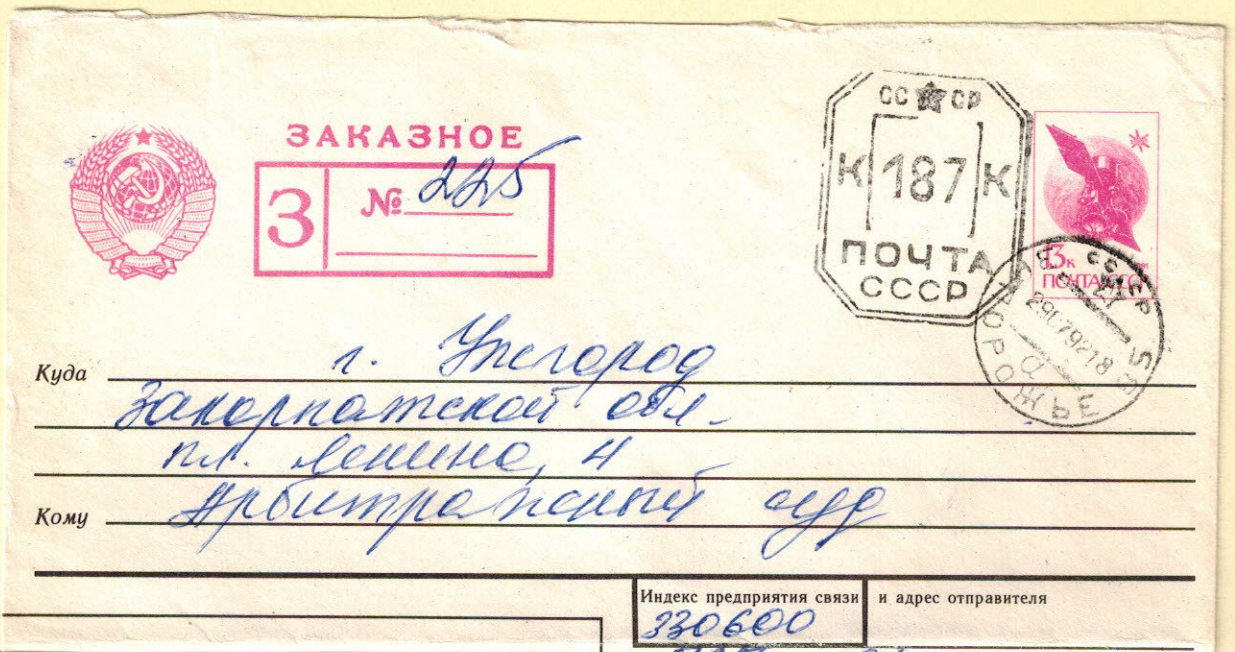 ЗАКАЗНОЕ
З № 225
СС СР
К 187 К
ПОЧТА
СССР
13к
ПОЧТА СССР
СССР
ЗАПОРОЖЬЕ
г. Ужгород
Куда
Закарпатской обл.
пл. Ленина, 4
Кому Арбитражный суд
Индекс предприятия связи и адрес отправителя
330600